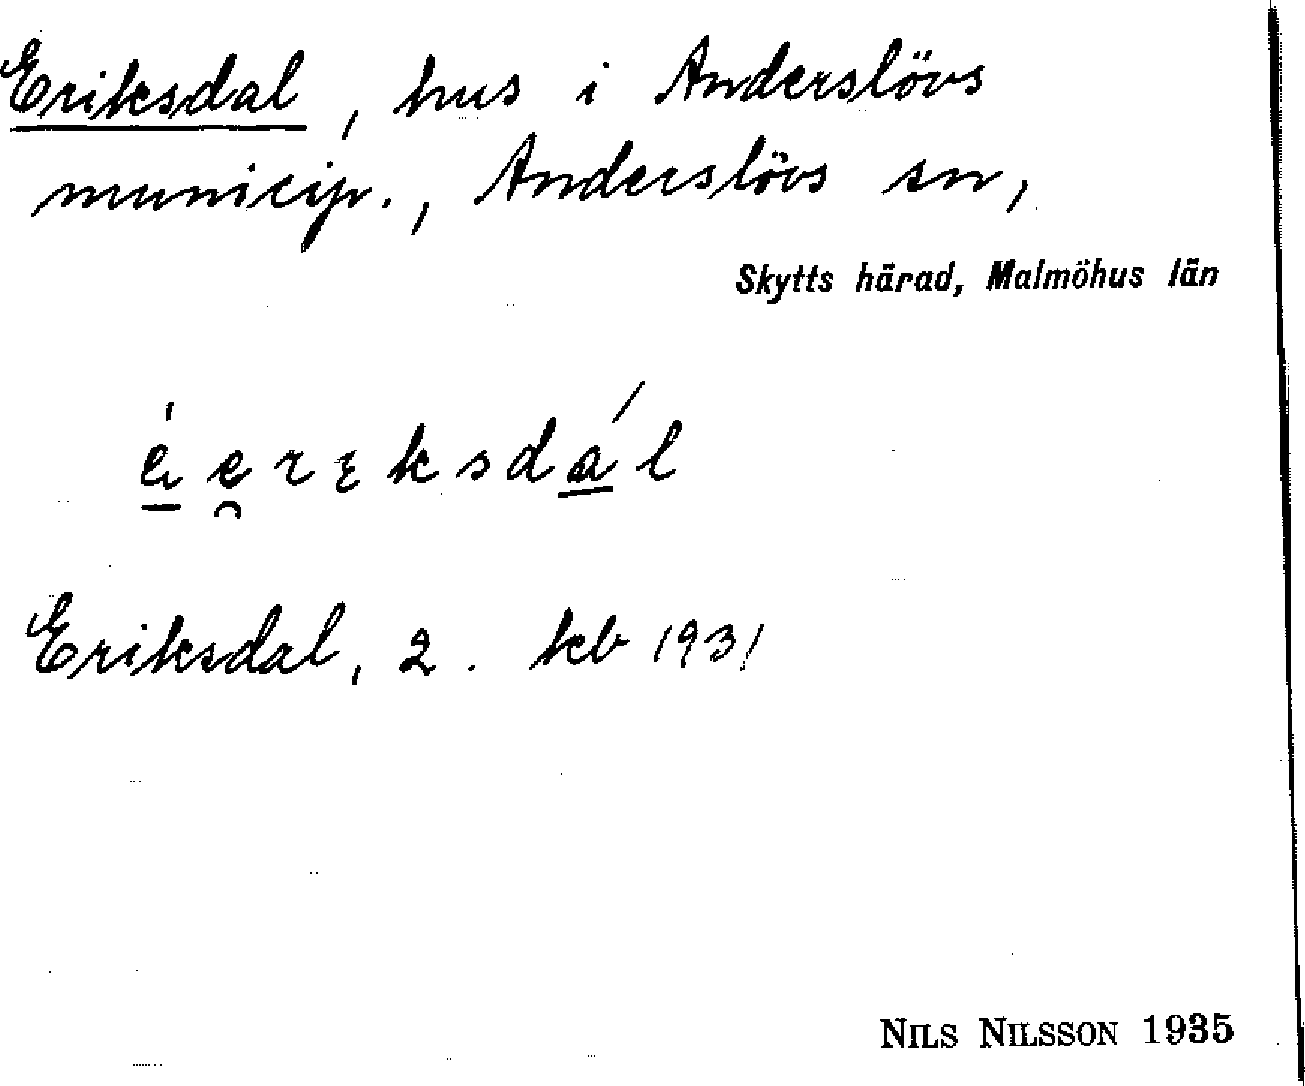 Eriksdal, hus i Anderslövs
municip., Anderslövs sn,
Skytts härad, Malmöhus län
Eriksdal, 2. keb 1931
NILS NILSSON 1935